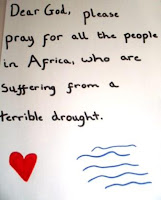 Dear God, please
pray for all the people
in Africa, who are
suffering from a
terrible drought.